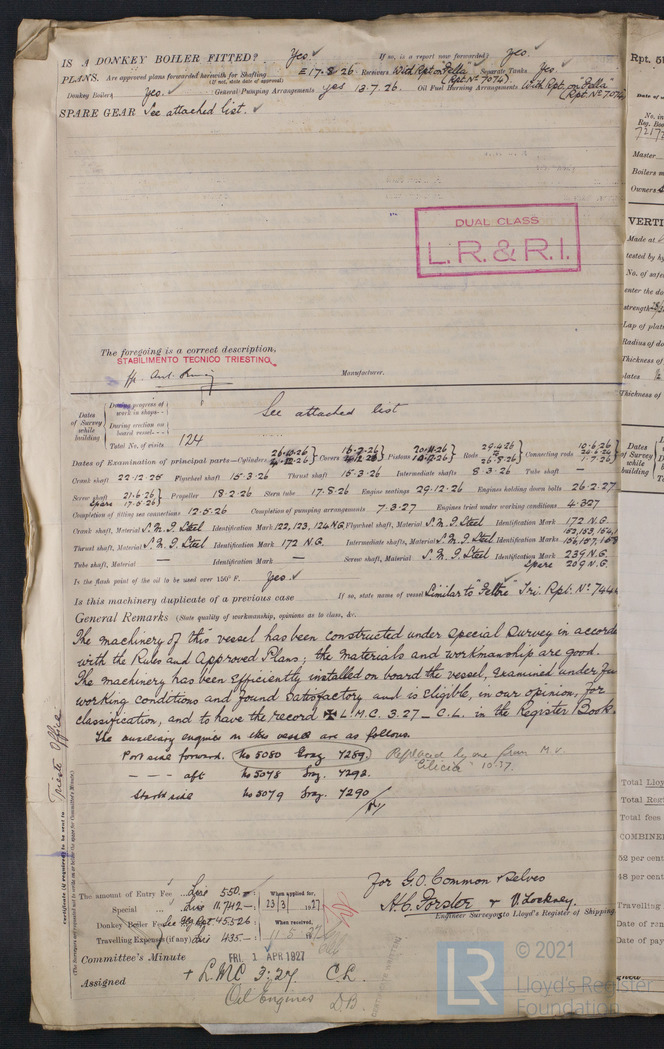 IS A DONKEY BOILER FITTED? Yes If so, is a report now forwarded? Yes.
PLANS. Are approved plans forwarded herewith for Shafting 17.8.26 Receivers With Rpt. on "Fella" Separate Tanks Yes.
(If not, state date of approval) (Rpt. No 7074)
Donkey Boilers Yes. General Pumping Arrangements yes 13.7.26. Oil Fuel Burning Arrangements With Rpt. on "Fella"
(Rpt. No 7074)
SPARE GEAR See attached list.
DUAL CLASS
L.R. & R.I.
The foregoing is a correct description,
STABILIMENTO TECNICO TRIESTINO
Manufacturer.
Dates of Survey while building
During progress of work in shops--
See attached list
During erection on board vessel---
Total No. of visits 124
Dates of Examination of principal parts—Cylinders 26.10.26 Covers Pistons 20.11.26 Rods 29.4.26 26.8.26 Connecting rods 10.6.26 1.7.26
Crank shaft 22.12.25 Flywheel shaft 15.3.26 Thrust shaft 15.3.26 Intermediate shafts 8.3.26 Tube shaft —
Screw shaft 21.6.26 Spare 17.5.26 Propeller 18.2.26 Stern tube 17.8.26 Engine seatings 29.12.26 Engines holding down bolts 26.2.27
Completion of fitting sea connections 12.5.26 Completion of pumping arrangements 7.3.27 Engines tried under working conditions 4.3.27
Crank shaft, Material S.M.I. Steel Identification Mark 122, 123, 124 N.G. Flywheel shaft, Material S.M.I. Steel Identification Mark 172 N.G.
Thrust shaft, Material S.M.I. Steel Identification Mark 172 N.G. Intermediate shafts, Material S.M.I. Steel Identification Marks 152, 153, 154, 156, 157, 158
Tube shaft, Material — Identification Mark — Screw shaft, Material S.M.I. Steel Identification Mark 239 N.G.
Spare 209 N.G.
Is the flash point of the oil to be used over 150° F. Yes.
Is this machinery duplicate of a previous case If so, state name of vessel Similar to "Feltre" Tri. Rpt. No 744
General Remarks (State quality of workmanship, opinions as to class, &c.
The machinery of this vessel has been constructed under special survey in accord
with the Rules and Approved Plans; the materials and workmanship are good.
The machinery has been efficiently installed on board the vessel, examined under
working conditions and found satisfactory and is eligible, in our opinion, for
classification, and to have the record ✠ L.M.C. 3.27 — C.L. in the Register Book.
The auxiliary engines in this vessel are as follows.
Port side forward. No 5080 Eng. 7289. Replaced by one from M.V.
"Cilicia" 10.37.
— — — aft No 5078 Eng. 7292.
Starbd side No 5079 Eng. 7290
Trieste Office
Certificate (if required) to be sent to
(The Surveyors are requested not to write on or below the space for Committee's Minute.)
The amount of Entry Fee .. Lire 550.=: When applied for,
Special .. Lire 11,742—: 23.3.1927
Donkey Boiler Fee See When received,
Travelling Expenses (if any) Lire 435.—: 11.5.27
For G.O. Common & Selves
A.C. Forster & V. Lockney.
Engineer Surveyors to Lloyd's Register of Shipping
Committee's Minute FRI. 1 APR 1927
Assigned + LMC 3.27 C.L.
Oil Engines D.B.
© 2021
LR Lloyd's Register
Foundation
Rpt. 5
Date of
No. in
Reg. Boo
Master
Boilers m
Owners
VERTI
Made at
tested by hy
No. of safe
enter the do
strength
Lap of plat
Radius of do
Thickness of
Thickness of
Dates
of Survey
while
building
Total Lloy
Total Regi
Total fees
COMBINE
52 per cent
48 per cent
Travelling
Date of ran
Date of pay